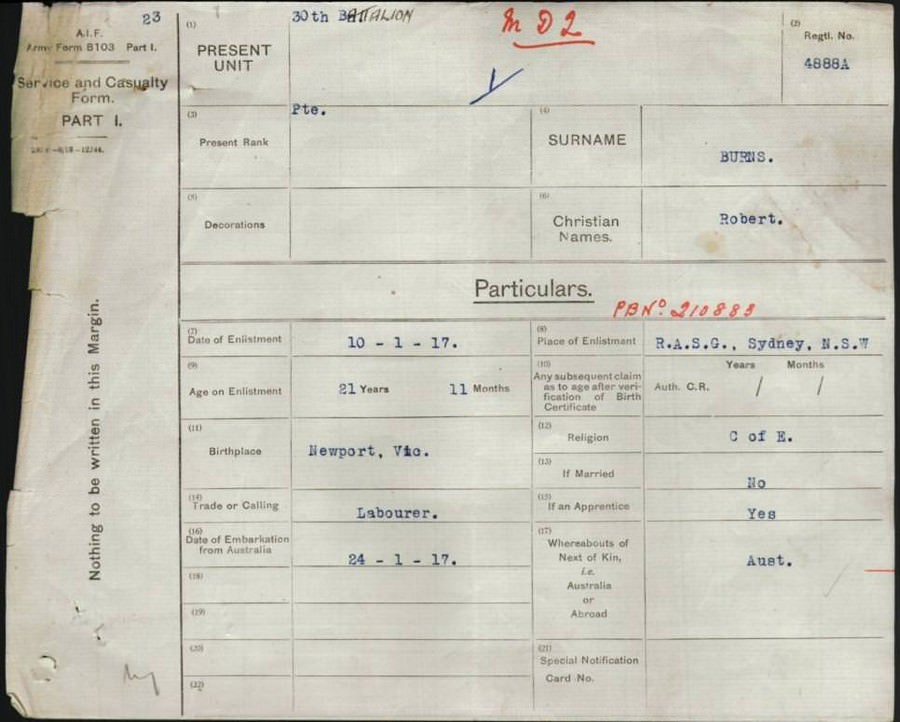 23
A.I.F.
Army Form B103 Part I.
Service and Casualty
Form.
PART I.
Nothing to be written in this Margin.
(1)
PRESENT
UNIT
30th BATTALION
M D 2
(2)
Regtl. No.
4888A
(3)
Present Rank
Pte.
(4)
SURNAME
BURNS.
(5)
Decorations
(6)
Christian
Names.
Robert.
Particulars.
PBNo. 210889
(7)
Date of Enlistment
10 - 1 - 17.
(8)
Place of Enlistment
R.A.S.G., Sydney, N.S.W
(9)
Age on Enlistment
21 Years 11 Months
(10)
Any subsequent claim
as to age after veri-
fication of Birth
Certificate
Years Months
Auth. C.R. / /
(11)
Birthplace
Newport, Vic.
(12)
Religion
C of E.
(13)
If Married
No
(14)
Trade or Calling
Labourer.
(15)
If an Apprentice
Yes
(16)
Date of Embarkation
from Australia
24 - 1 - 17.
(17)
Whereabouts of
Next of Kin,
i.e.
Australia
or
Abroad
Aust.
(18)
(19)
(20)
(21)
Special Notification
Card No.
(22)